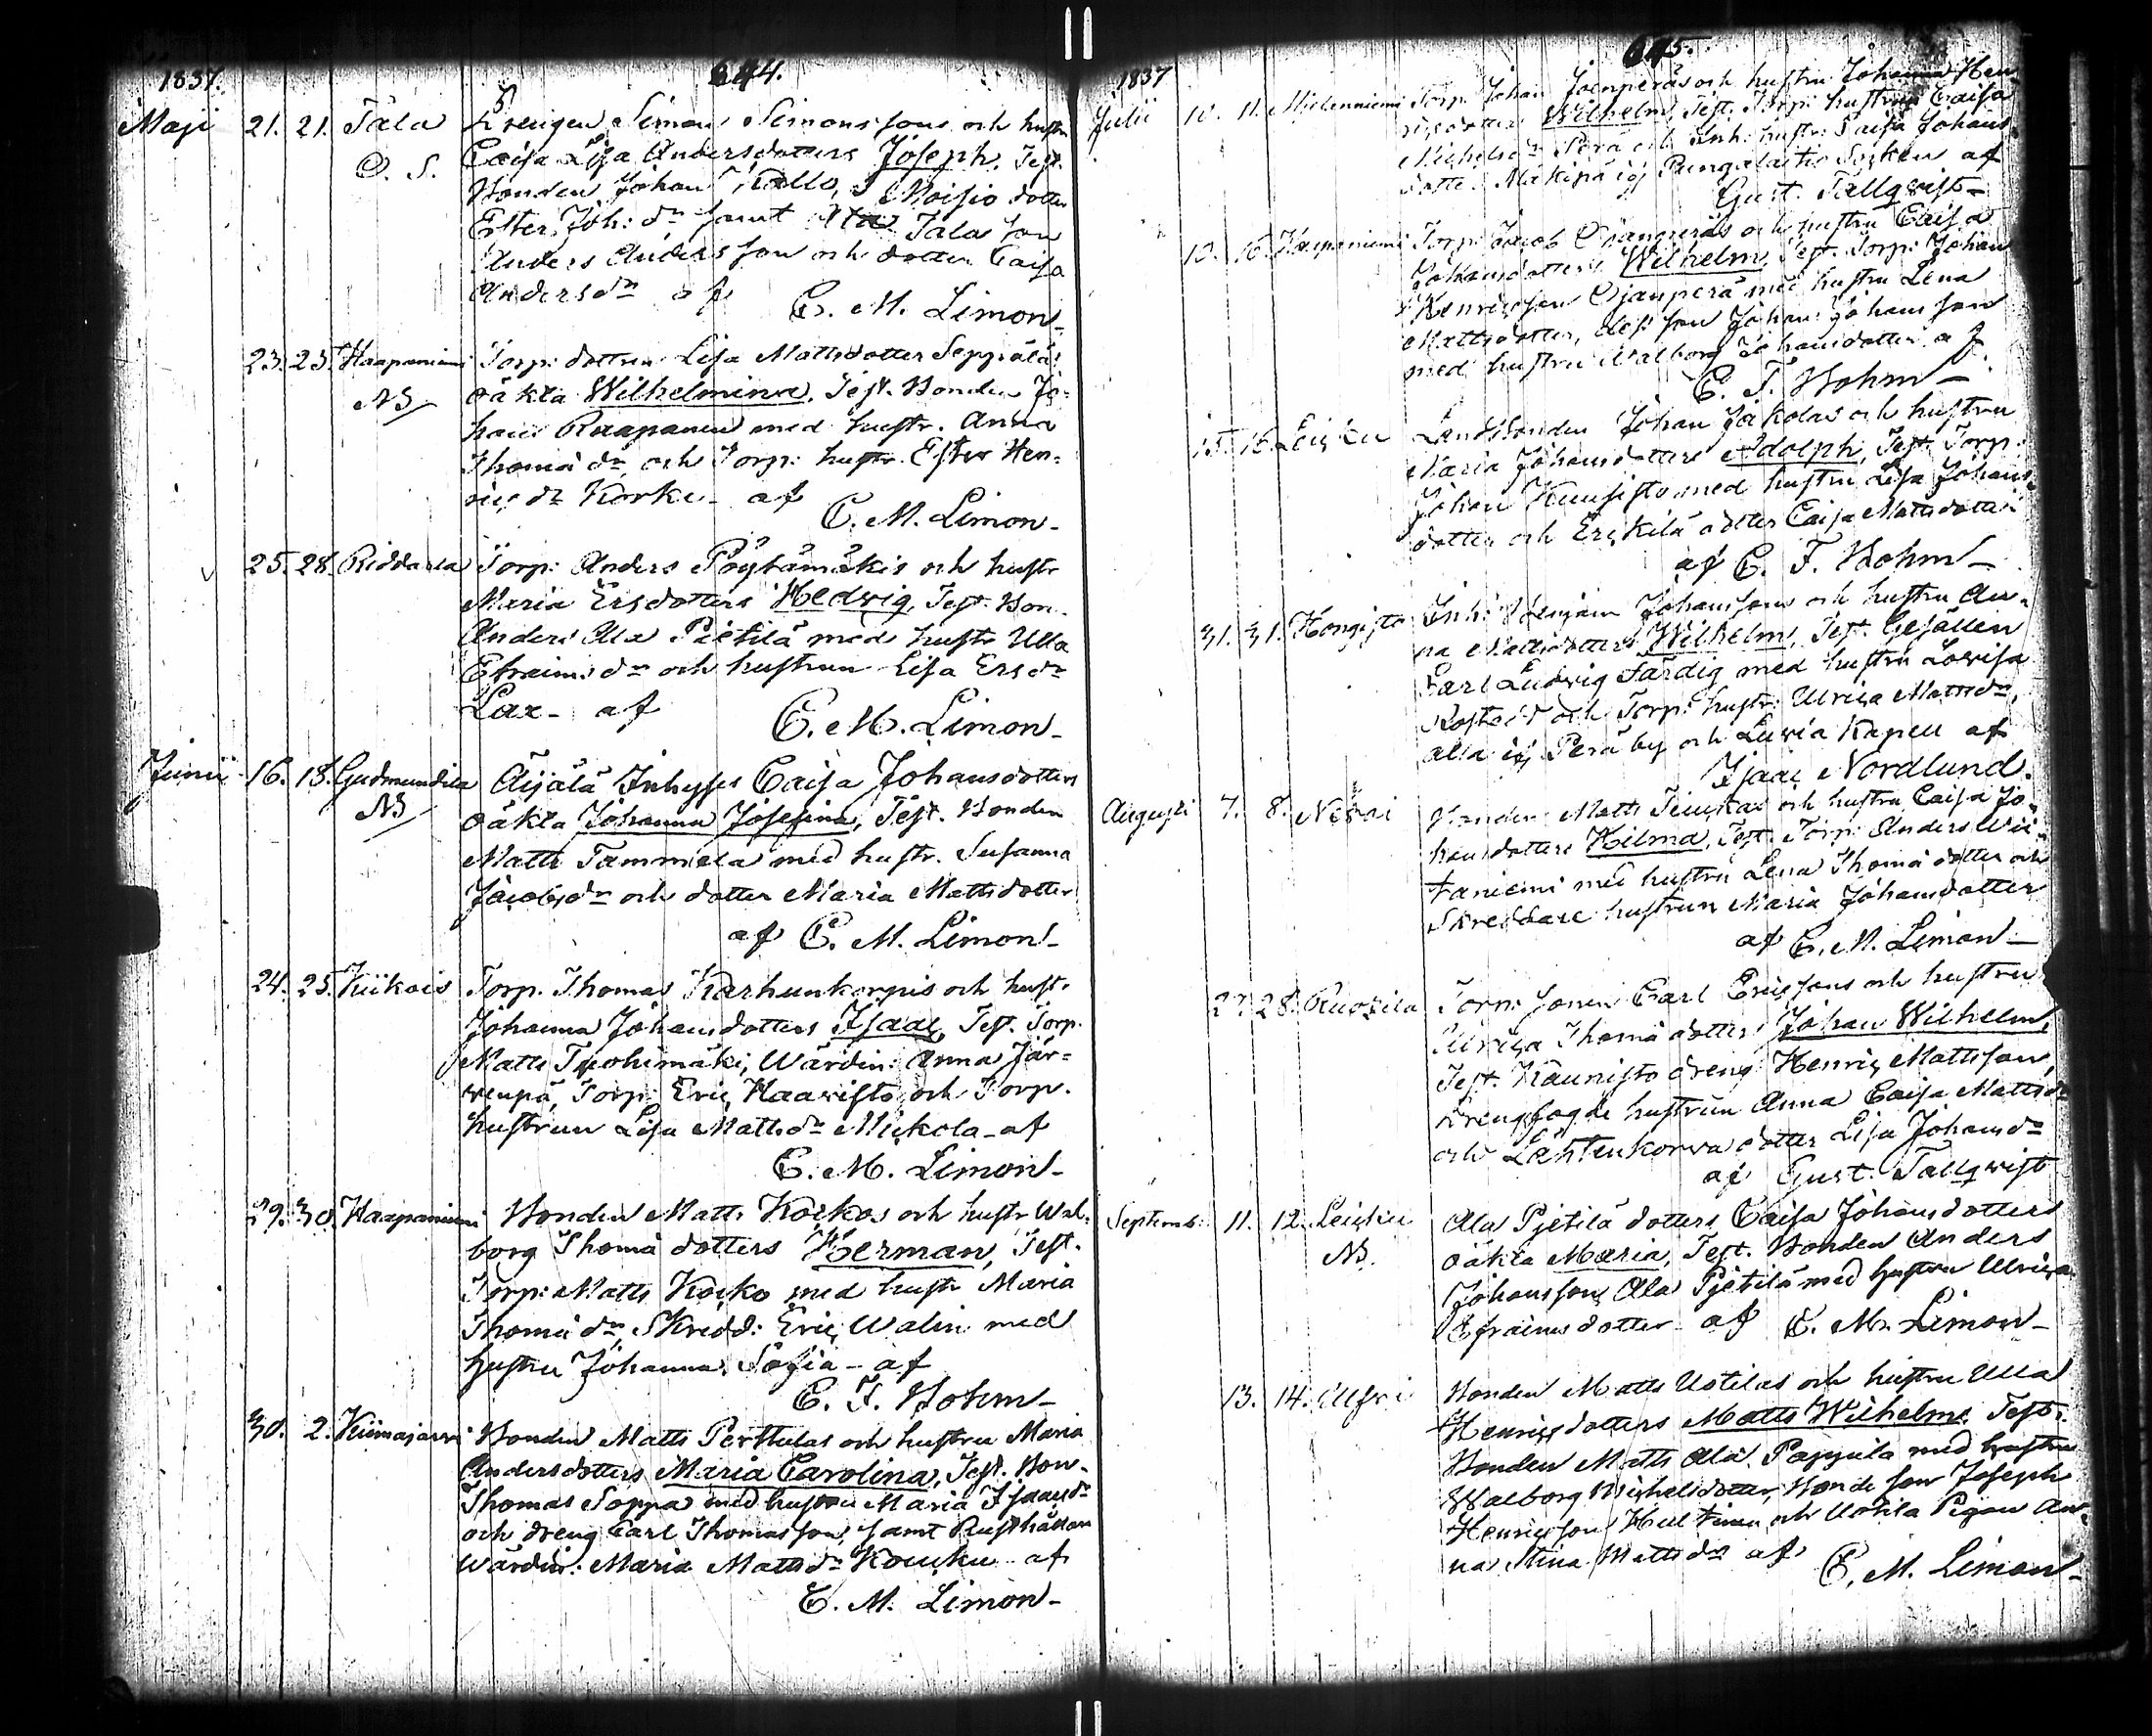 1837. 644.
Maji 21. 21. Tala Drengen Simon Simonssons och hustr
O. S. Caisa Lisa Andersdotters Joseph, Test.
Bonden Johan Kallo, Moisio dotter
Ester Joh: dr samt Tala son
Anders Andersson och dotter Caisa
Andersdr af C. M. Limon
23. 23. Haapaniemi Torp: dottren Lisa Mattsdotter Seppälä
NB oäkta Wilhelmina, Test. Bonden Jo-
han Raapanen med hustr. Anna
Thomä dr och Torp: hustr. Ester Hen-
rics dr Korku af
C. M. Limon
25. 28. Riddarla Torp: Anders Pöytämäkis och hustr
Maria Ersdotters Hedvig, Test. Bon.
Anders Ala Pietilä med hustr Ulla
Efraims dr och hustrun Lisa Ers dr
Lax af
C. M. Limon
Junii 16. 18. Gudmundila Äijälä Inhyses Caisa Johansdotters
NB oäkta Johanna Josefina, Test. Bonden
Matts Tammela med hustr. Susanna
Jacobsdr och dotter Maria Mattsdotter
af C. M. Limon
24. 25. Kiikois Torp. Thomas Karhunkorpis och hust.
Johanna Johansdotters Isaac, Test. Torp.
Matts Tuohimäki, Wärdin: Anna Jär-
wenpä, Torp: Eric Haavisto och Torp.
hustrun Lisa Matts dr Mickola af
C. M. Limon
29. 30. Haapaniemi Bonden Matts Koskos och hustr Wal-
borg Thomä dotters Herman, Test.
Torp: Matts Kosko med hustr Maria
Thomä dr, Skredd: Eric Walin med
hustru Johanna Sofia af
C. F. Bohm
30. 2. Kiimajärvi Bonden Matts Perttulas och hustru Maria
Andersdotters Maria Carolina, Test. Bon-
Thomas Soppa med hustru Maria Isaacs dr
och dreng Carl Thomasson, samt Rusthållar
Wärdin: Maria Matts dr Kouku af
C. M. Limon
1837 645.
Julii 10. 11. Mielenniemi Torp: Johan Joenperäs och hustru Johanna Hen-
ricsdotters Wilhelm, Test. Torp: hustrun Caisa
Michels dr Perä och Inh: hustr: Caisa Johans-
dotter Mäkipä i Pungalaitio Socken af
Gust. Tallqvist
15. 16. Haapaniemi Torp: Jacob Ojanperäs och hustru Caisa
Johansdotters Wilhelm, Test. Torp: Johan
Henricsson Ojanperä med hustru Lena
Mattsdotter, dess son Johan Johansson
med hustru Walborg Johansdotter af
C. F. Bohm
15. 16. Leisku Landbonden Johan Jakolas och hustru
Maria Johansdotters Adolph, Test. Torp.
Johan Kuusisto med hustru Lisa Johans-
dotter och Erckilä dotter Caisa Mattsdotter
af C. F. Bohm
31. 31. Kongisto Inh: Benjam Johanssons och hustru An-
na Mattsdotters Wilhelm, Test. Gesällen
Carl Ludvig Färdig med hustru Lovisa
och Torp: hustr: Ulrica Matts dr
Alla ifr Perä by och Luvia Kapell af
Isaac Nordlund.
Augusti 7. 8. Bonden Matts och hustru Caisa Jo-
hansdotters Hilma, Test. Torp: Anders Wii-
taniemi med hustru Lena Thomä dotter och
Skreddare hustrun Maria Johansdotter
af C. M. Limon
27. 28. Ruokila Torp: sonen Carl Ericssons och hustru
Ulrica Thomä dotters Johan Wilhelm,
Test. Kaunisto dreng Henric Mattsson,
drengfogde hustrun Anna Caisa Matts dr
och Lähtenkorva dotter Lisa Johans dr
af Gust. Tallqvist
Septemb: 11. 12. Leisku Ala Pjetilä dotters Caisa Johansdotters
NB. oäkta Maria, Test. Bonden Anders
Johansson Ala Pjetilä med hustru Ulrica
Efraimsdotter af C. M. Limon
13. 14. Illfvi Bonden Matts Uotilas och hustru Ulla
Henricsdotters Matts Wilhelm, Test.
Bonden Matts Ala Pappila med hustru
Walborg Michelsdotter, Bonde son Joseph
Henricsson Hultinen och Uotila Pigan An-
na Stina Matts dr af C. M. Limon